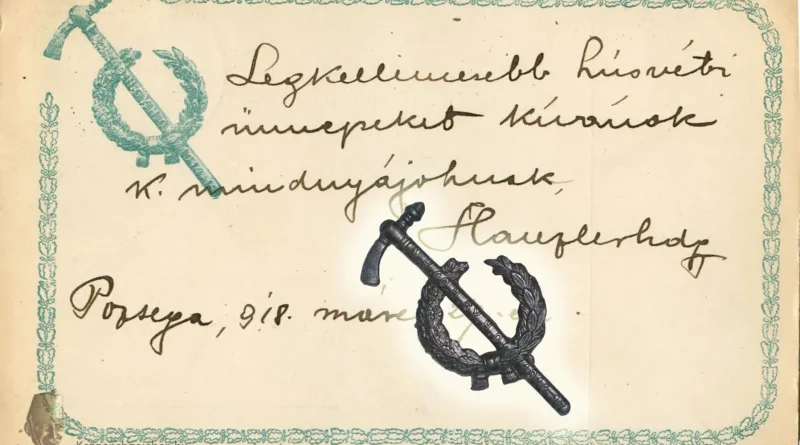 Legkellemesebb húsvéti
ünnepeket kívánok
k. mindnyájohnak,
Pozsega, 918. márc